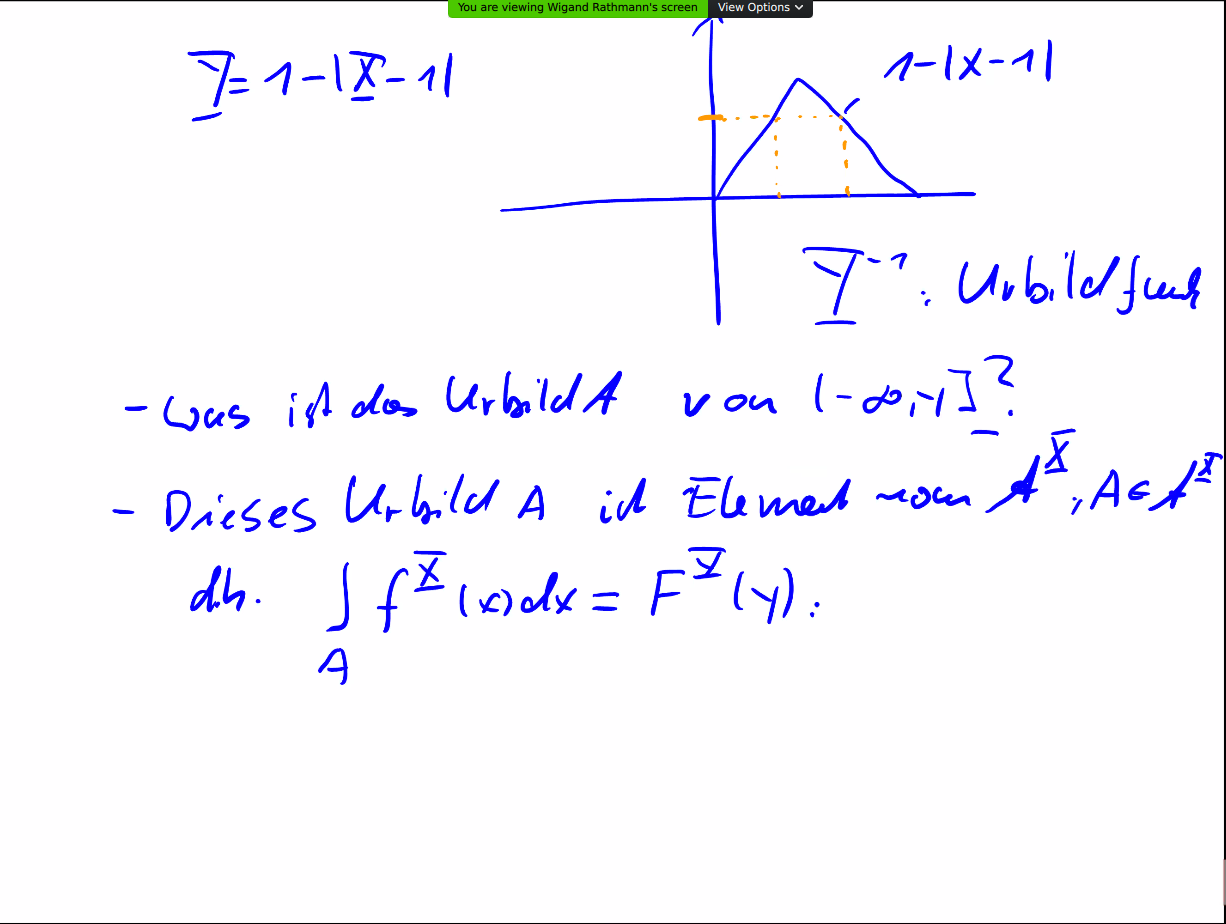 You are viewing Wigand Rathmann's screen View Options
Y = 1-|X-1|
1-|x-1|
Y⁻¹: Urbildfunk
- Was ist das Urbild A von (-∞, y]?
- Dieses Urbild A ist Element von A^X, A ∈ A^X
d.h. ∫_A f^X(x)dx = F^Y(y).